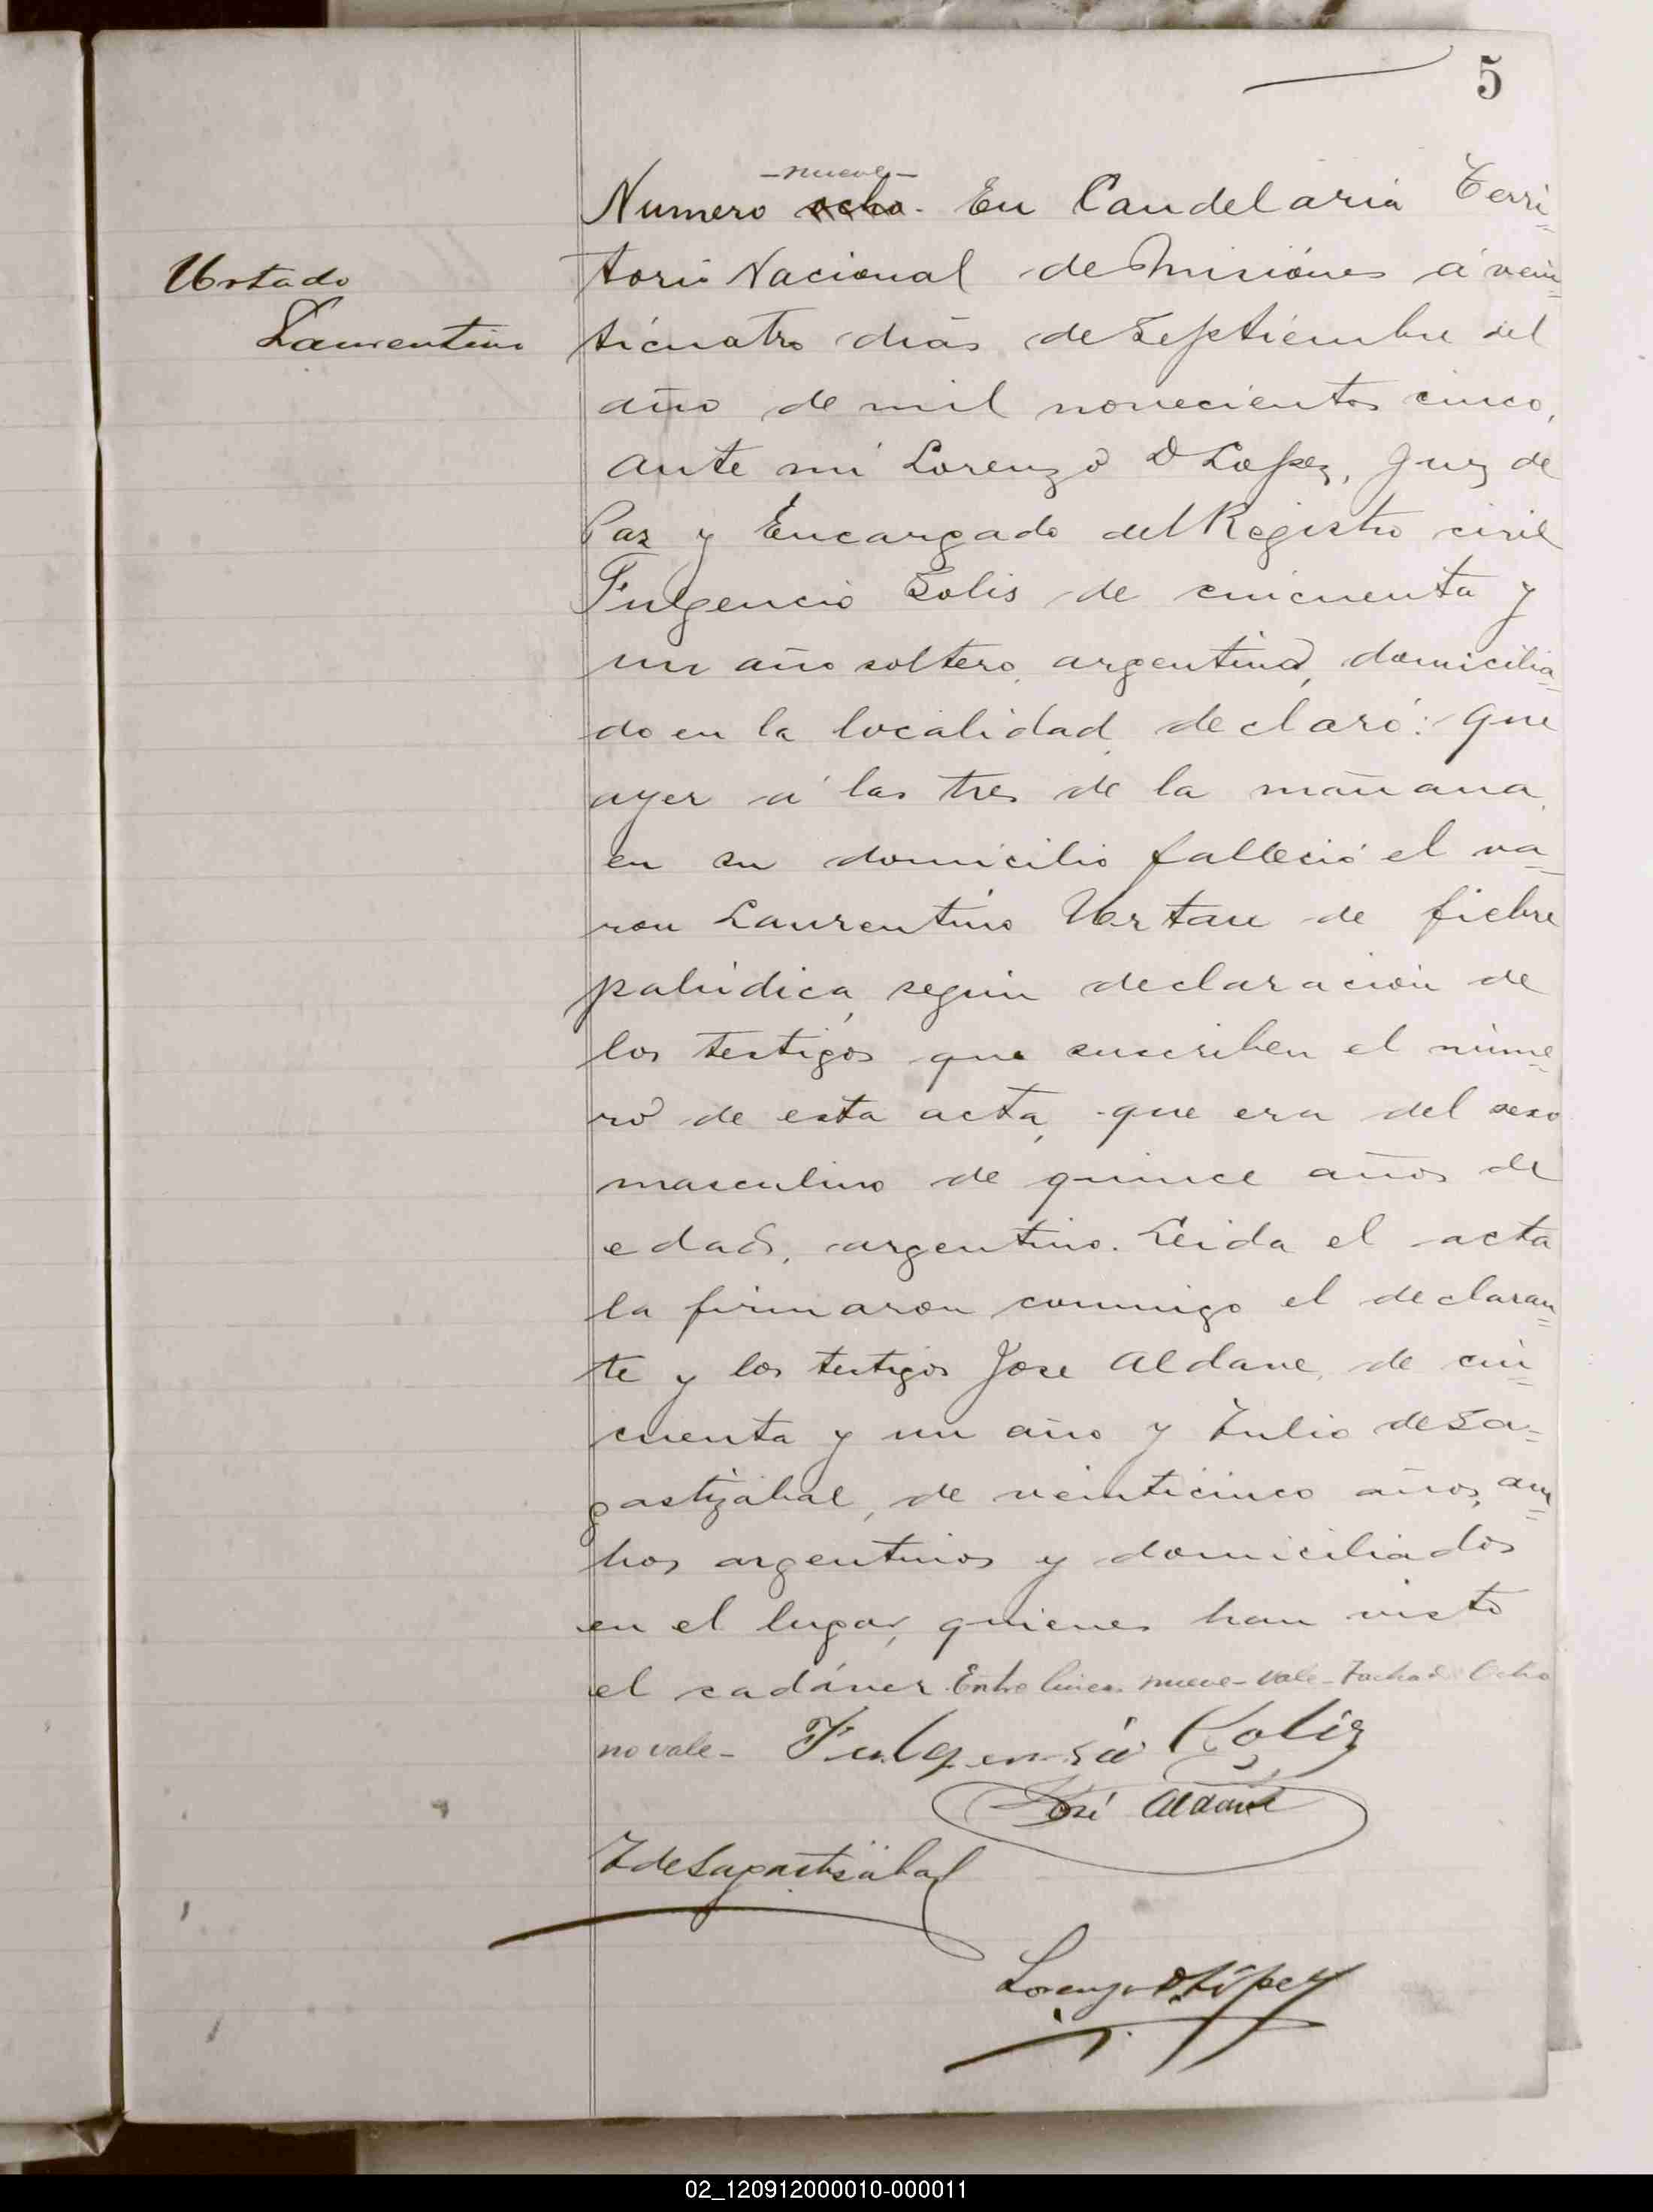 5
-nueve-
Numero ocho. En Candelaria Terri=
torio Nacional de Misiónes á vein=
Urtado
Laurentino
ticuatro dias de Septiembre del
año de mil novecientos cinco,
ante mi Lorenzo D Lopez, Juez de
Paz y Encargado del Registro civil
Fulgencio Solis de cincuenta y
un año soltero, argentino, domicilia=
do en la localidad declaró: que
ayer á las tres de la mañana,
en su domicilio falleció el va=
ron Laurentino Urtau de fiebre
palúdica, según declaración de
los testigos que suscriben el núme=
ro de esta acta, que era del sexo
masculino de quince años de
edad, argentino. Leida el acta
la firmaron conmigo el declaran=
te y los testigos Jose Aldane, de cin=
cuenta y un año y Julio de Sa=
gastizabal, de veinticinco años, am=
bos argentinos y domiciliados
en el lugar, quienes han visto
el cadáver. Entre lineas nueve-vale-Tachado Ocho
no vale- Fulgensio Soliz
José Aldane
J de Sagastizabal
Lorenzo D. López
02_120912000010-000011